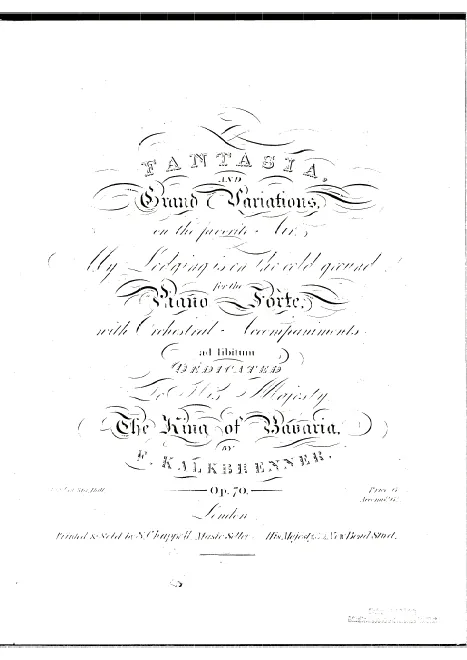 FANTASIA,
AND
Grand Variations,
on the favorite Air,
My Lodging is on the cold ground
for the
Piano Forte,
with Orchestral Accompaniments
ad libitum
DEDICATED
To His Majesty
The King of Bavaria,
BY
F. KALKBRENNER.
Op. 70.
Price
London
Printed & Sold by S. Chappell, Music Seller His Majesty New Bond Street.